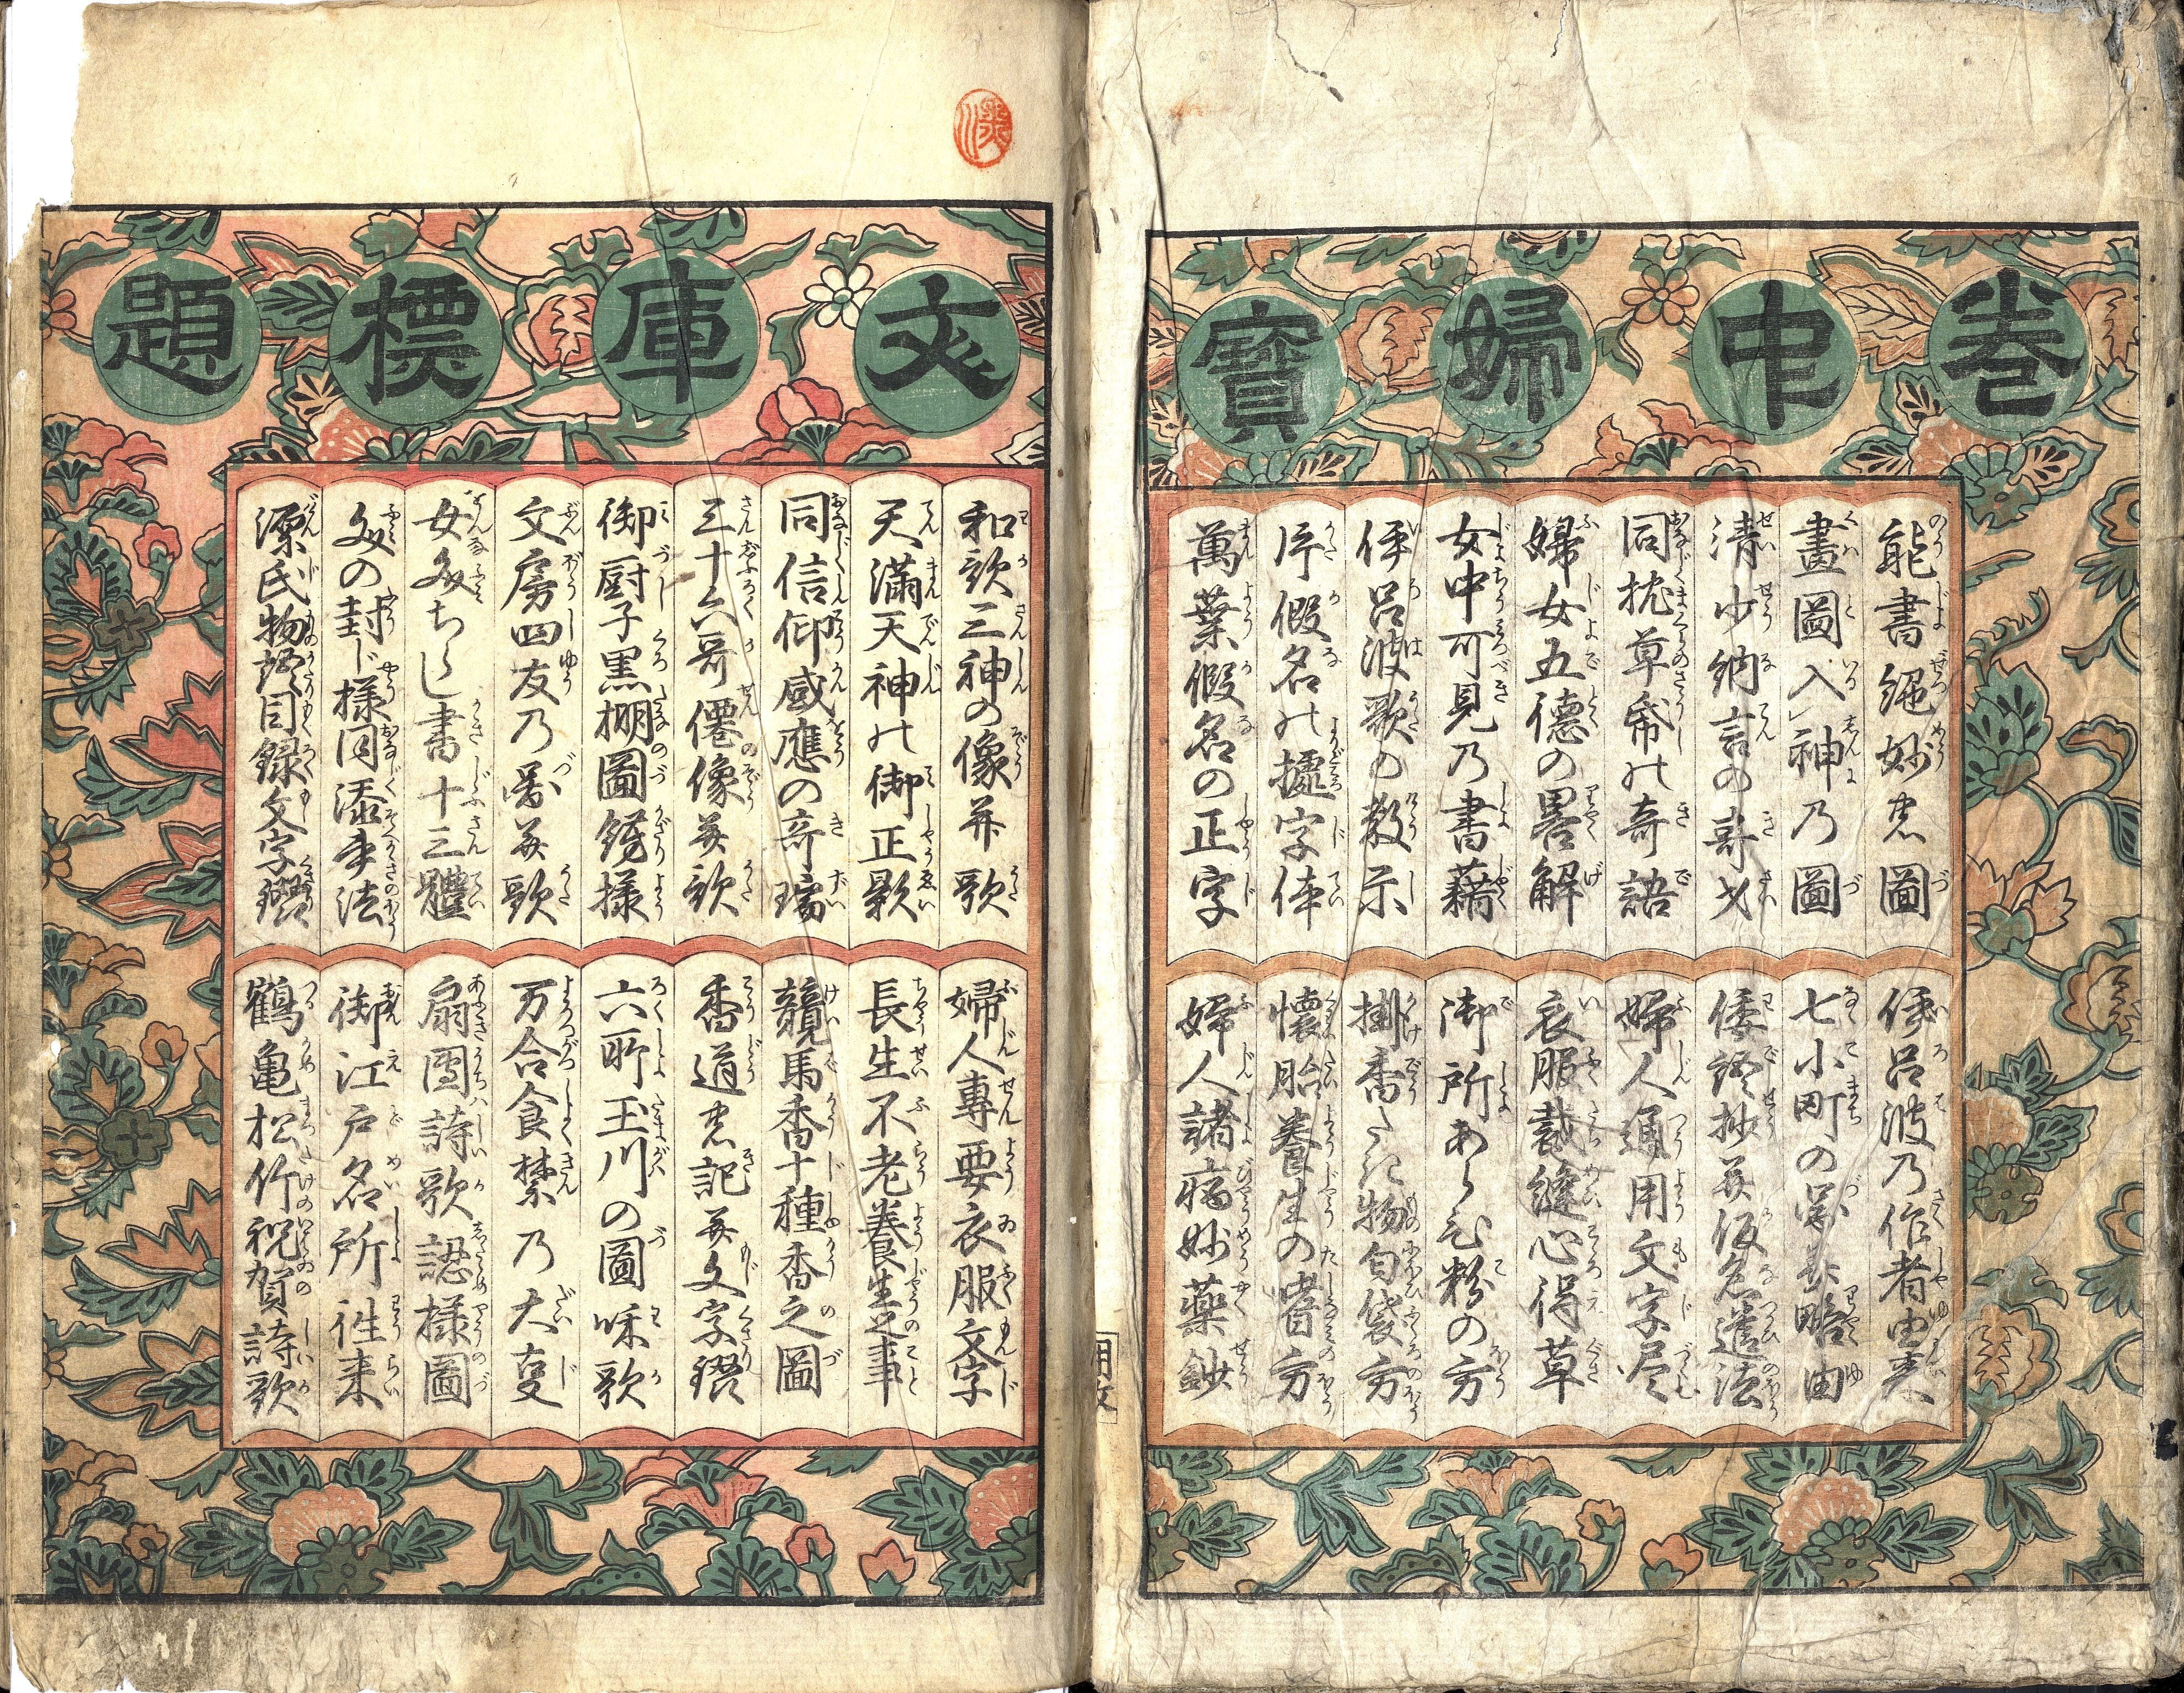 巻中婦寶
能書絶妙の圖
畫圖入神乃圖
清少納言の奇才
同枕草帋の奇語
婦女五徳の畧解
女中可見乃書籍
伊呂波歌の教示
片假名の據字体
萬葉假名の正字
伊呂波乃作者由来
七小町の略由
倭語抄并仮名遣法
婦人通用文字尽
衣服裁縫心得草
御所あらひ粉の方
掛香たき物匂袋方
懐胎養生の嗜方
婦人諸病妙薬鈔
文庫標題
和歌三神の像并歌
天満天神の御正影
同信仰感應の奇瑞
三十六哥僊像并歌
御厨子黒棚圖錺様
文房四友乃圖并歌
女文ちらし書十三體
文の封じ様同添筆法
源氏物語目録文字鏁
婦人專要衣服文字
長生不老養生之事
競馬香十種香之圖
香道忠記并文字鏁
六所玉川の圖咊歌
万合食禁乃大叓
扇團詩歌認様圖
御江戸名所往来
鶴亀松竹祝賀詩歌